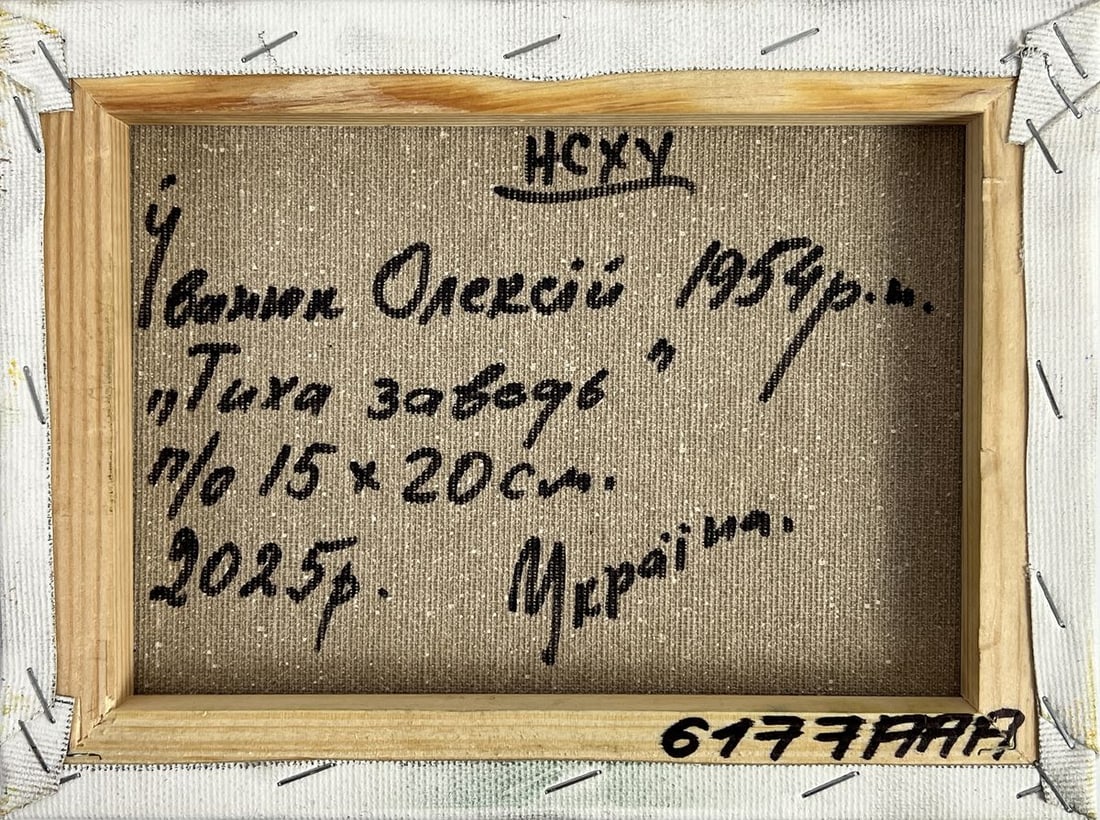 НСХУ
Іванюк Олексій 1954р.н.
„Тиха заводь"
п/о 15 х 20 см.
2025р. Україна.
6177AAA